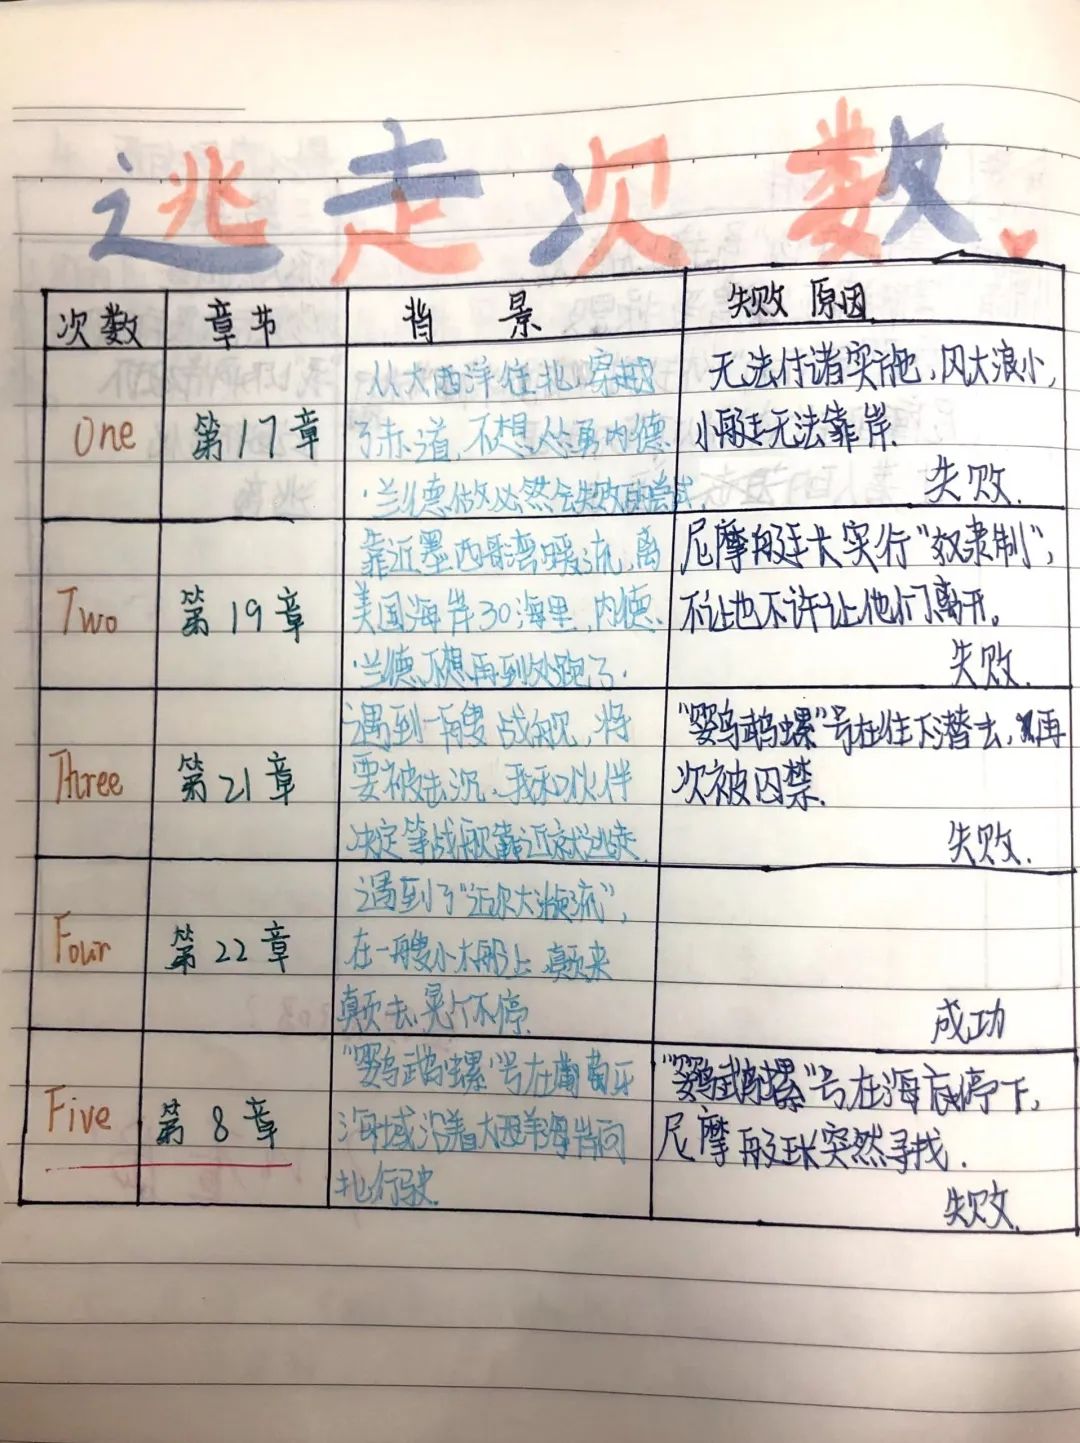 逃走次数.
次数 章节 背景 失败原因
One 第17章
从大西洋往北,穿越
了赤道,不想从事内德
·兰德做必然会失败的尝试.
无法付诸实施,风大浪小,
小艇无法靠岸.
失败.
Two 第19章
靠近墨西哥湾暖流,离
美国海岸30海里,内德
·兰德不想再到处跑了.
尼摩艇长实行“奴隶制”,
不让也不许让他们离开。
失败.
Three 第21章
遇到一艘战舰,将
要被击沉、我和伙伴
决定等战舰靠近就逃走.
“鹦鹉螺”号在往下潜去,再
次被囚禁.
失败.
Four 第22章
遇到了“迈尔大漩流”,
在一艘小木船上颠来
颠去,晃个不停.
成功
Five 第8章
“鹦鹉螺”号在葡萄牙
海域沿着大西洋海岸向
北行驶.
“鹦鹉螺”号在海底停下,
尼摩艇长突然寻找.
失败.